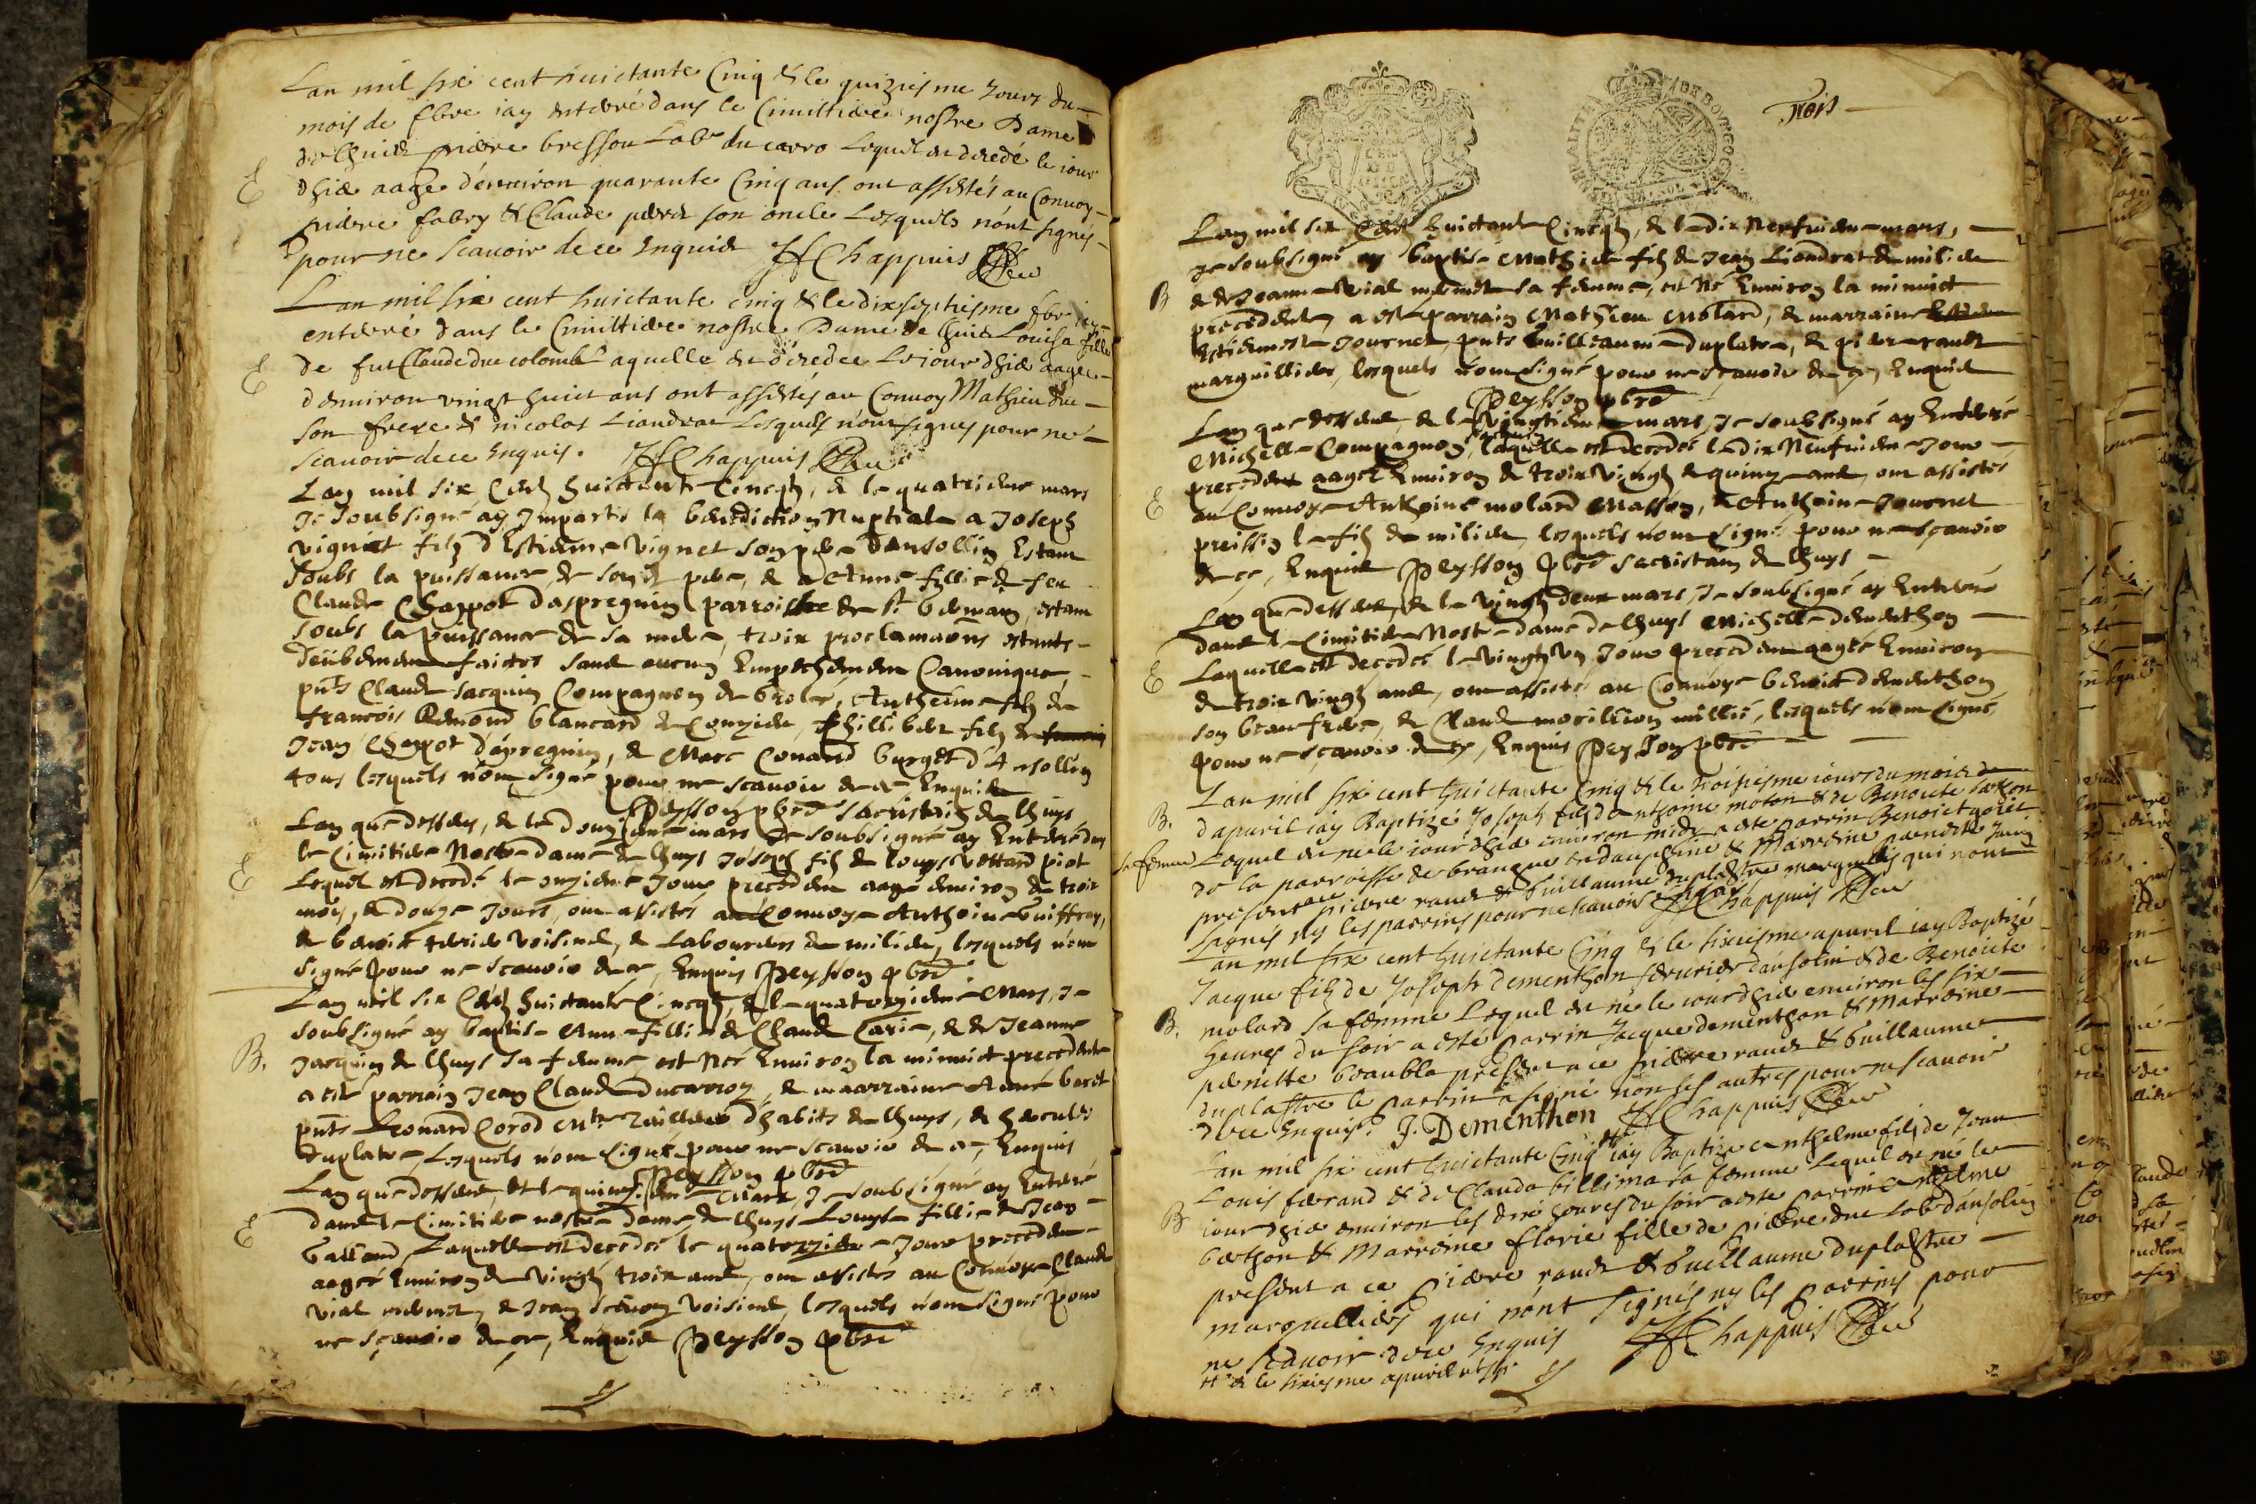 Lan mil six cent huictante Cinq & le quiziesme Jour du
mois de fbre iay enterré dans le Cimittiere nostre Dame
de lhuis pierre bresson Labr du carro lequel est decedé le iour
E
d'hier aage d'environ quarante Cinq ans ont assistés au Convoy
pierre fabry & Claude son oncle lesquels n'ont signés
pour ne scavoir de ce Enquis JH Chappuis
Lan mil six cent huictante cinq & le dixseptiesme fbre iay
enterré dans le Cimittiere nostre Dame de lhuis Louise fille
E
de fut Claude duc colomb aquelle est decedee Le iour d'hier aagee
denviron vingt huict ans ont assistés au Convoy Mathieu duc
son frere & nicolas Liandrat Lesquels n'ont signes pour ne
scavoir de ce Enquis. JH Chappuis
Lan mil six Cent huictante Cincq, & le quatrieme mars
Je soubsigne ay Impartis la benediction Nuptiale a Joseph
vignet filz d'Estienne vignet son pere Dansollin Estant
soubs la puissance de sond pere, & a Anne fillie de feu
Claude Chappot daspregnin parroisse de St. benoit, estant
soubs la puissance de sa mere, troix proclamaons estants
deübement faictes sans aucung Empechement Canonique,
pnts Claude Jacquin Compagnon de brole, Anthelme filz de
francois blancard de Conzieu, phillibert filz de
Jean Chappot d'apregnin, & Marc Conard burget d'Ansollin
tous lesquels n'ont signé pour ne scavoir de ce Enquis
Peysson pbre Sacristain de lhuys
Lan que dessus, & le douzieme mars Je soubsigné ay Enterré dans
E
le Cimitiere Nostre dame de lhuys Joseph filz de Louys vettard piot
Lequel est decedé le onzieme Jour precedent aagé environ de trois
moys, & douze Jours, ont assistés au Convoye Anthoine Guiffray,
& benoit voisins, & Laboureurs de milieu, lesquels n'ont
signé pour ne scavoir de ce, Enquis Peysson pbre
Lan mil six Cent huictante Cincq, & le quatorzieme Mars, Je
soubsigné ay baptisé Anne fillie de Claude Carie, & de Jeanne
B.
Jacquin de lhuys sa femme, est Née Environ la minuict precedente
a esté parrain Jean Claude Ducarroz, & maarraine Aimé beret
pnts Leonard Corod Mtre Tailleur d'habits de lhuys, & hercules
duplatre, Lesquels n'ont signé pour ne scavoir de ce, Enquis
Peysson pbre
Lan que dessus, & le quinzieme Mars, Je soubsigné ay Enterré
E
dans le Cimitiere nostre dame de lhuys Louyse fillie de Jean
Galland Laquelle est decedée le quatorzieme Jour precedent
aagée Environ de vingtz troix ans, ont assistés au Convoye Claude
vial, & Jean voisins, lesquels n'ont signé pour
ne sçavoir de ce, Enquis Peysson pbre
Trois
Lan mil six Cent huictante Cincq, & le dix Neufvieme mars,
Je soubsigné ay baptisé Mathieu filz de Jean Liandrat de milieu
B
& de Jeanne vial sa femme, est Né Environ la minuict
precedente, a esté parrain Mathieu Molard, & marraine
Estiennette Journet, pnts Guilleaume duplatre, & pierre raude
marguilliers, lesquels n'ont signé pour ne scavoir de ce, Enquis
Peysson pbre
Lan que dessus, & le vingtieme mars, Je soubsigné ay Enterré
Michelle Compagnon, laquelle est decedée le dix Neufvieme Jour
precedent aagée Environ de troix vingtz & quinze ans, ont assistés
E
au Convoye Anthoine molard Masson, & Anthoine Journet
preissin le filz de milieu, lesquels n'ont signé pour ne sçavoir
de ce, Enquis Peysson pbre Sacristain de lhuys
Lan que dessus, & le vingtz deux mars, Je soubsigné ay Enterré
dans le Cimitiere Nostre dame de lhuys Michelle dementhon
E
Laquelle est decedée le vingtz vn Jour precedent aagée Environ
de troix vingtz ans, ont assistés au Convoye benoict dementhon
son beau frere, & Claude morillion millié, lesquels n'ont signé
pour ne sçavoir de ce, Enquis Peysson pbre
Lan mil six cent huictante Cinq & le troisiesme iours du mois de
B.
d'apvril iay Baptize Joseph fils d'anthoine moton & de Benoite
sa femme
Lequel est ne le iour d'hier environ midy a este parrin Benoict
de la parroisse de brangue en dauphine & Marreine pernette
present a ce pierre raude & Guillaume duplastre marguilliers qui n'ont
signés ny les parrins pour ne scavoir JH Chappuis
Lan mil six cent huictante Cinq & le sixiesme apvril iay Baptizé
Jacque filz de Joseph dementhon serrurier d'ansolin & de Benoite
B.
molard sa femme Lequel est ne le iour d'hier environ les six
heures du soir a esté parrin Jacque dementhon & Marreine
pernette beauble present a ce pierre raude & Guillaume
duplastre le parrin a signé non les autres pour ne scavoir
de ce Enquis. J. Dementhon JH Chappuis
Lan mil six cent huictante Cinq # iay Baptize anthelme filz de Jean
Louis ferrand & de Claude billima sa femme Lequel est né le
B
iour d'hier environ les dix heures du soir a este parrin anthelme
berthon & Marreine florie fille de pierre duc Labr d'ansolin
present a ce pierre raude & Guillaume duplastre
marguilliers qui n'ont signés ny les parrins pour
ne scavoir de ce Enquis JH Chappuis
# & le sixiesme apvril